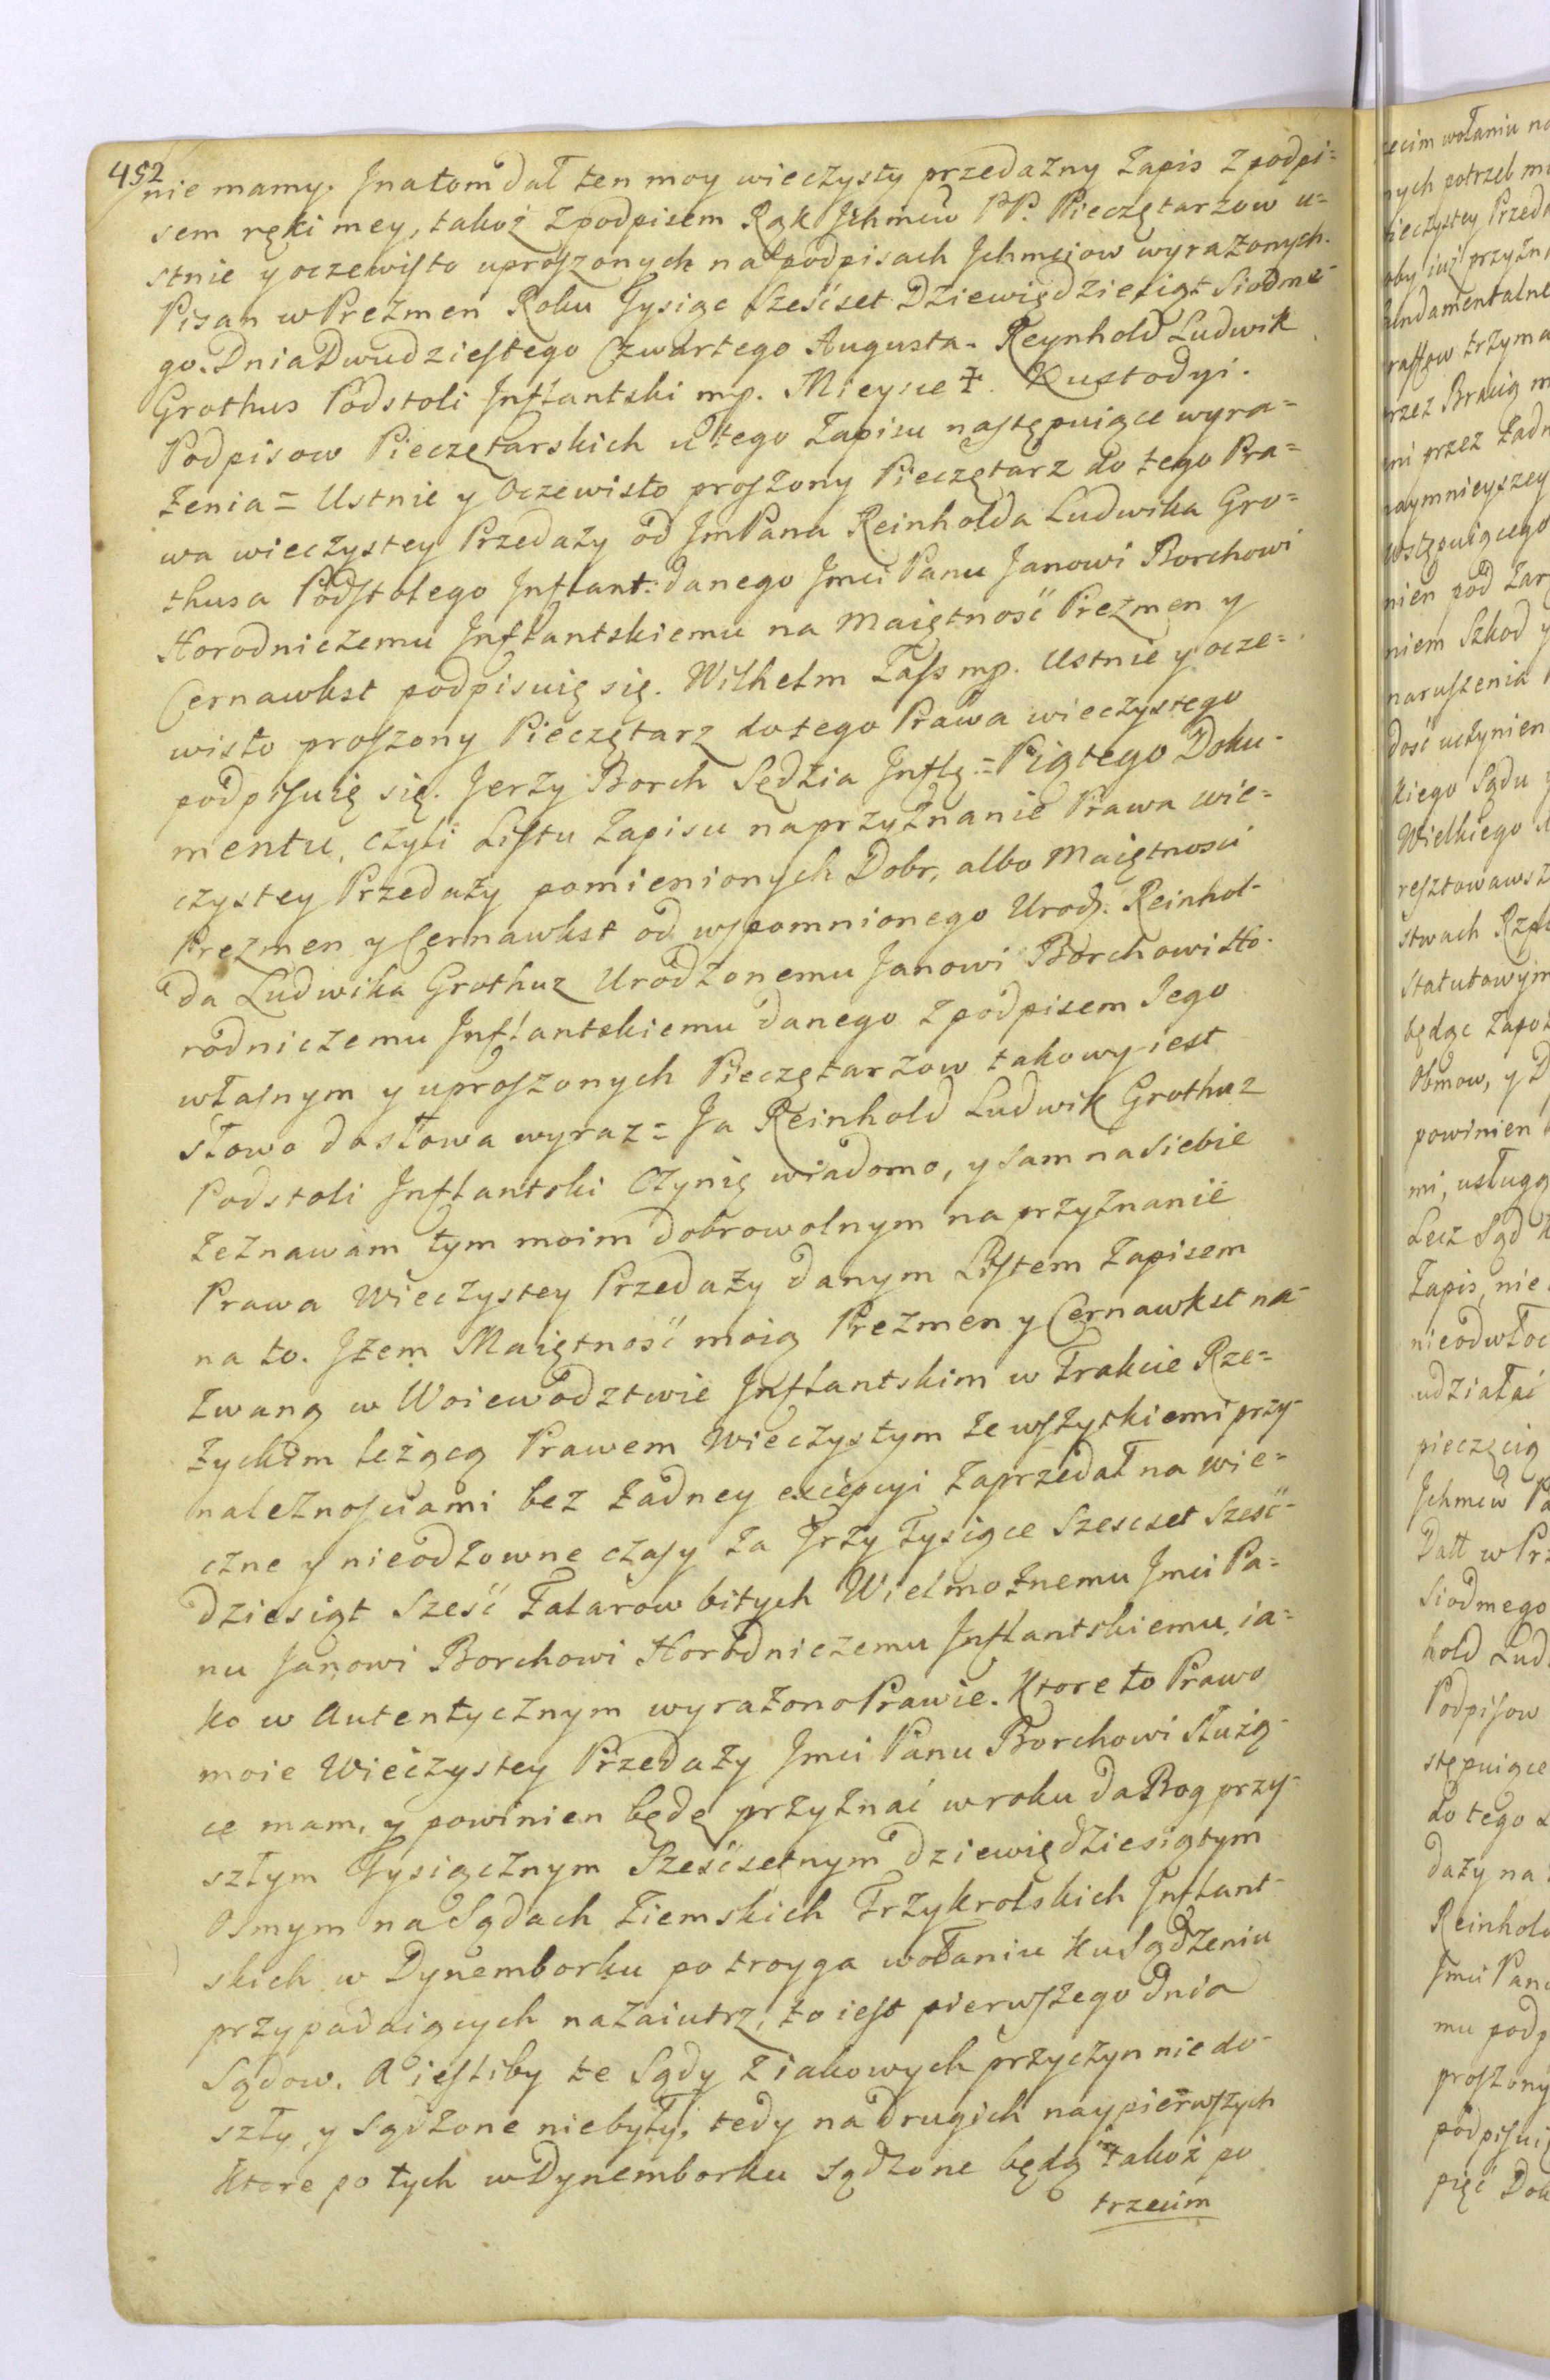 452
nie mamy. Jnatom dał ten moy wieczysty przedazny Zapis Zpodpi=
sem ręki mey, takoż Zpodpisem Rąk Jchmćw PP. Pieczętarzow u=
stnie y oczewisto uproszonych na podpisach Jchmciow wyrażonych.
Pisan w Preżmen Roku Tysiąc Sześćset Dziewiędziesiąt Siodme=
go. Dnia Dwudziestego Czwartego Augusta. Reynhold Ludwik
Grothus Podstoli Jnflantski mp. Mieysce ‡. Kustodyi.
Podpisow Pieczętarskich u tego Zapisu następuiące wyra=
żenia = Ustnie y Oczewisto proszony Pieczętarz do tego Pra=
wa wieczystey Przedaży od JmPana Reinholda Ludwika Gro=
thusa Podstolego Jnflant: danego Jmci Panu Janowi Borchowi
Horodniczemu Jnflantskiemu na Maiętność Preżmen y
Cernawkst podpisuię się. Wilhelm Zass mp. Ustnie y ocze=
wisto proszony Pieczętarz do tego Prawa wieczystego
podpisuię się. Jerzy Borch Sędzia Jnflę = Piątego Doku-
mentu, czyli Listu Zapisu na przyznanie Prawa wie=
czystey Przedaży pomienionych Dobr, albo Maiętnosci
Preżmen y Cernawkst od wspomnionego Urodz: Reinhol-
da Ludwika Grothuz Urodzonemu Janowi Borchowi Ho-
rodniczemu Jnflantskiemu danego Z podpisem Jego
własnym y uproszonych Pieczętarzow takowy iest
słowo dosłowa wyraz = Ja Reinhold Ludwik Grothuz
Podstoli Jnflantski Czynię wiadomo, y sam na siebie
Zeznawam tym moim dobrowolnym na przyznanie
Prawa Wieczystey Przedaży danym Listem Zapisem
na to. Jżem Maiętność moią Preżmen y Cernawkst na-
Zwaną w Woiewodztwie Jnflantskim w Trakcie Rze=
życkim leżącą Prawem Wieczystym Ze wszytkiemi przy-
należnosciami bez żadney excepcyi Zaprzedał na wie=
czne y nieodzowne czasy Za Trzy Tysiące Szescset Sześć-
dziesiąt Sześć Talarow bitych Wielmożnemu Jmci Pa=
nu Janowi Borchowi Horodniczemu Jnflantskiemu, ia=
ko w Autentycznym wyrażono Prawie. Ktore to Prawo
moie Wieczystey Przedaży Jmci Panu Borchowi służą-
ce mam, y powinien będę przyznać w roku da Bog przy-
szłym Tysiącznym Sześćsetnym dziewiędziesiątym
Osmym na Sądach Ziemskich Trzykrolskich Jnflant-
skich w Dynemborku po troyga wołaniu ku Sądzeniu
przypadaiących nazaiutrz, to iest pierwszego dnia
Sądow. A iesliby te Sądy Z iakowych przyczyn nie do-
szły, y Sądzone niebyły, tedy na drugich naypierwszych
ktore po tych w Dynemborku sądzone będą takoż po
trzecim